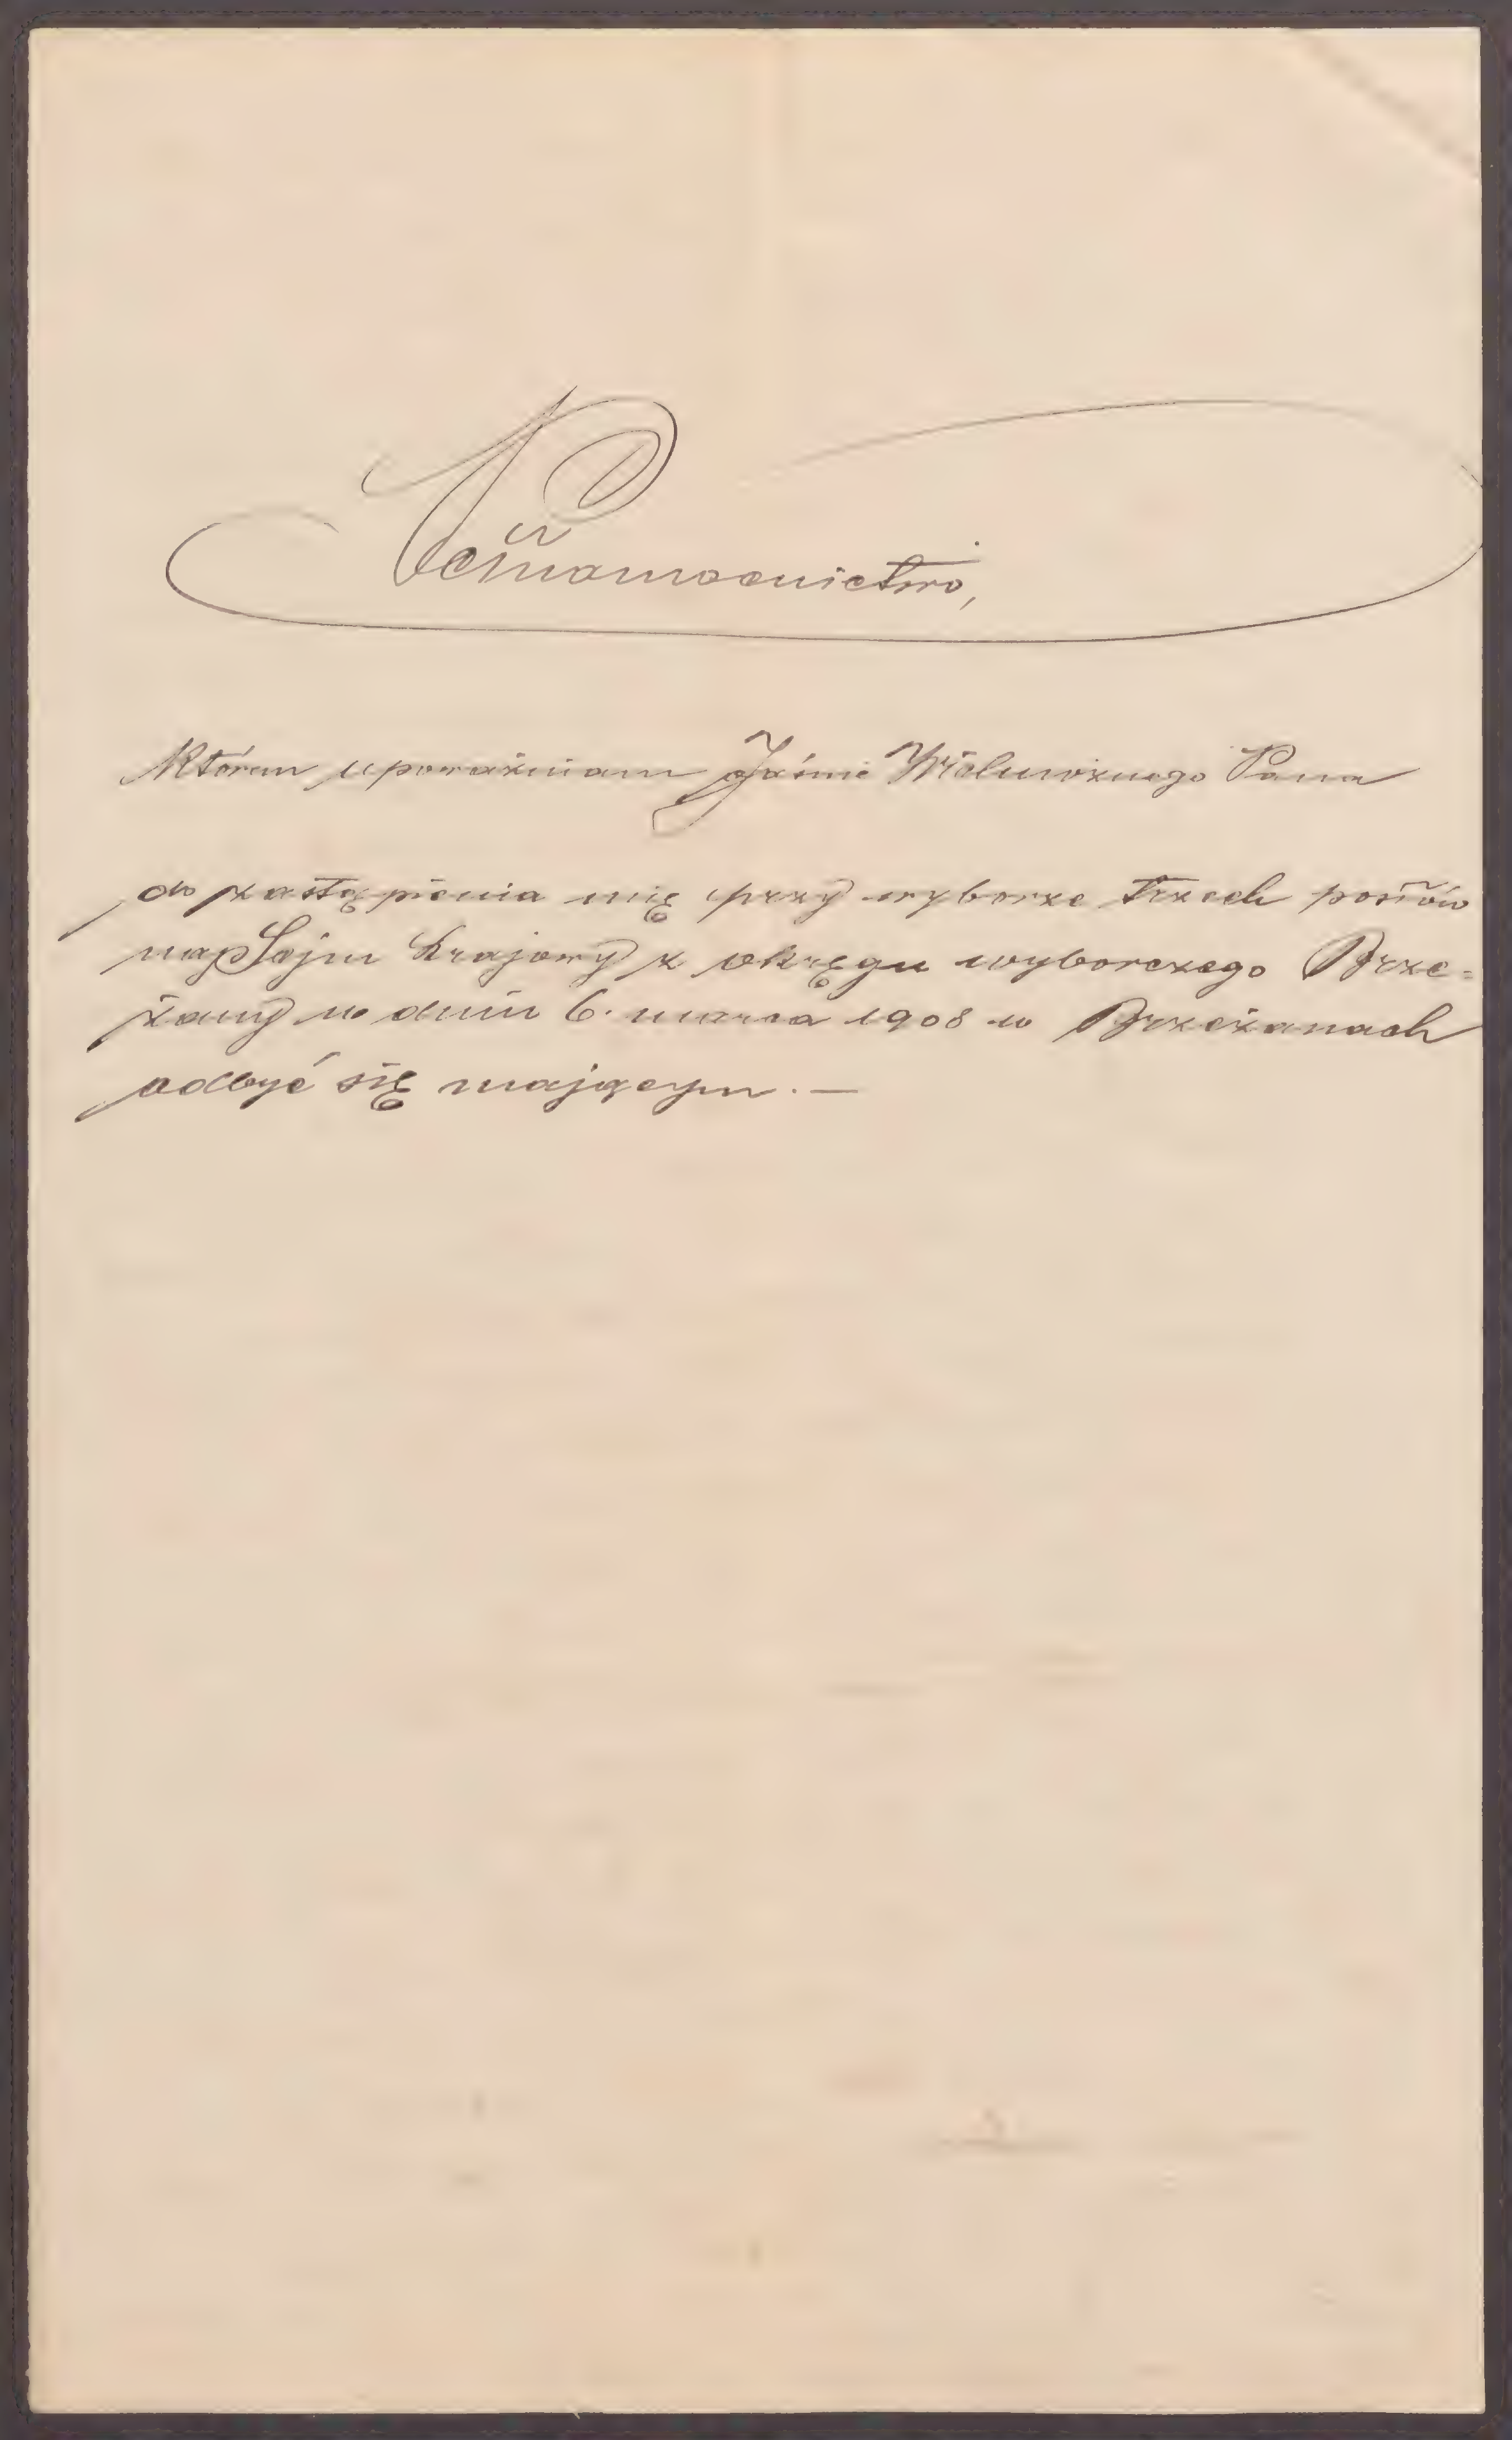 Pełnomocnictwo,
Którem upoważniam Jaśnie Wielmożnego Pana
do zastąpienia mię przy wyborze trzech posłów
na Sejm Krajowy z okręgu wyborczego Brze=
żany w dniu 6. marca 1908 w Brzeżanach
odbyć się mającym. —